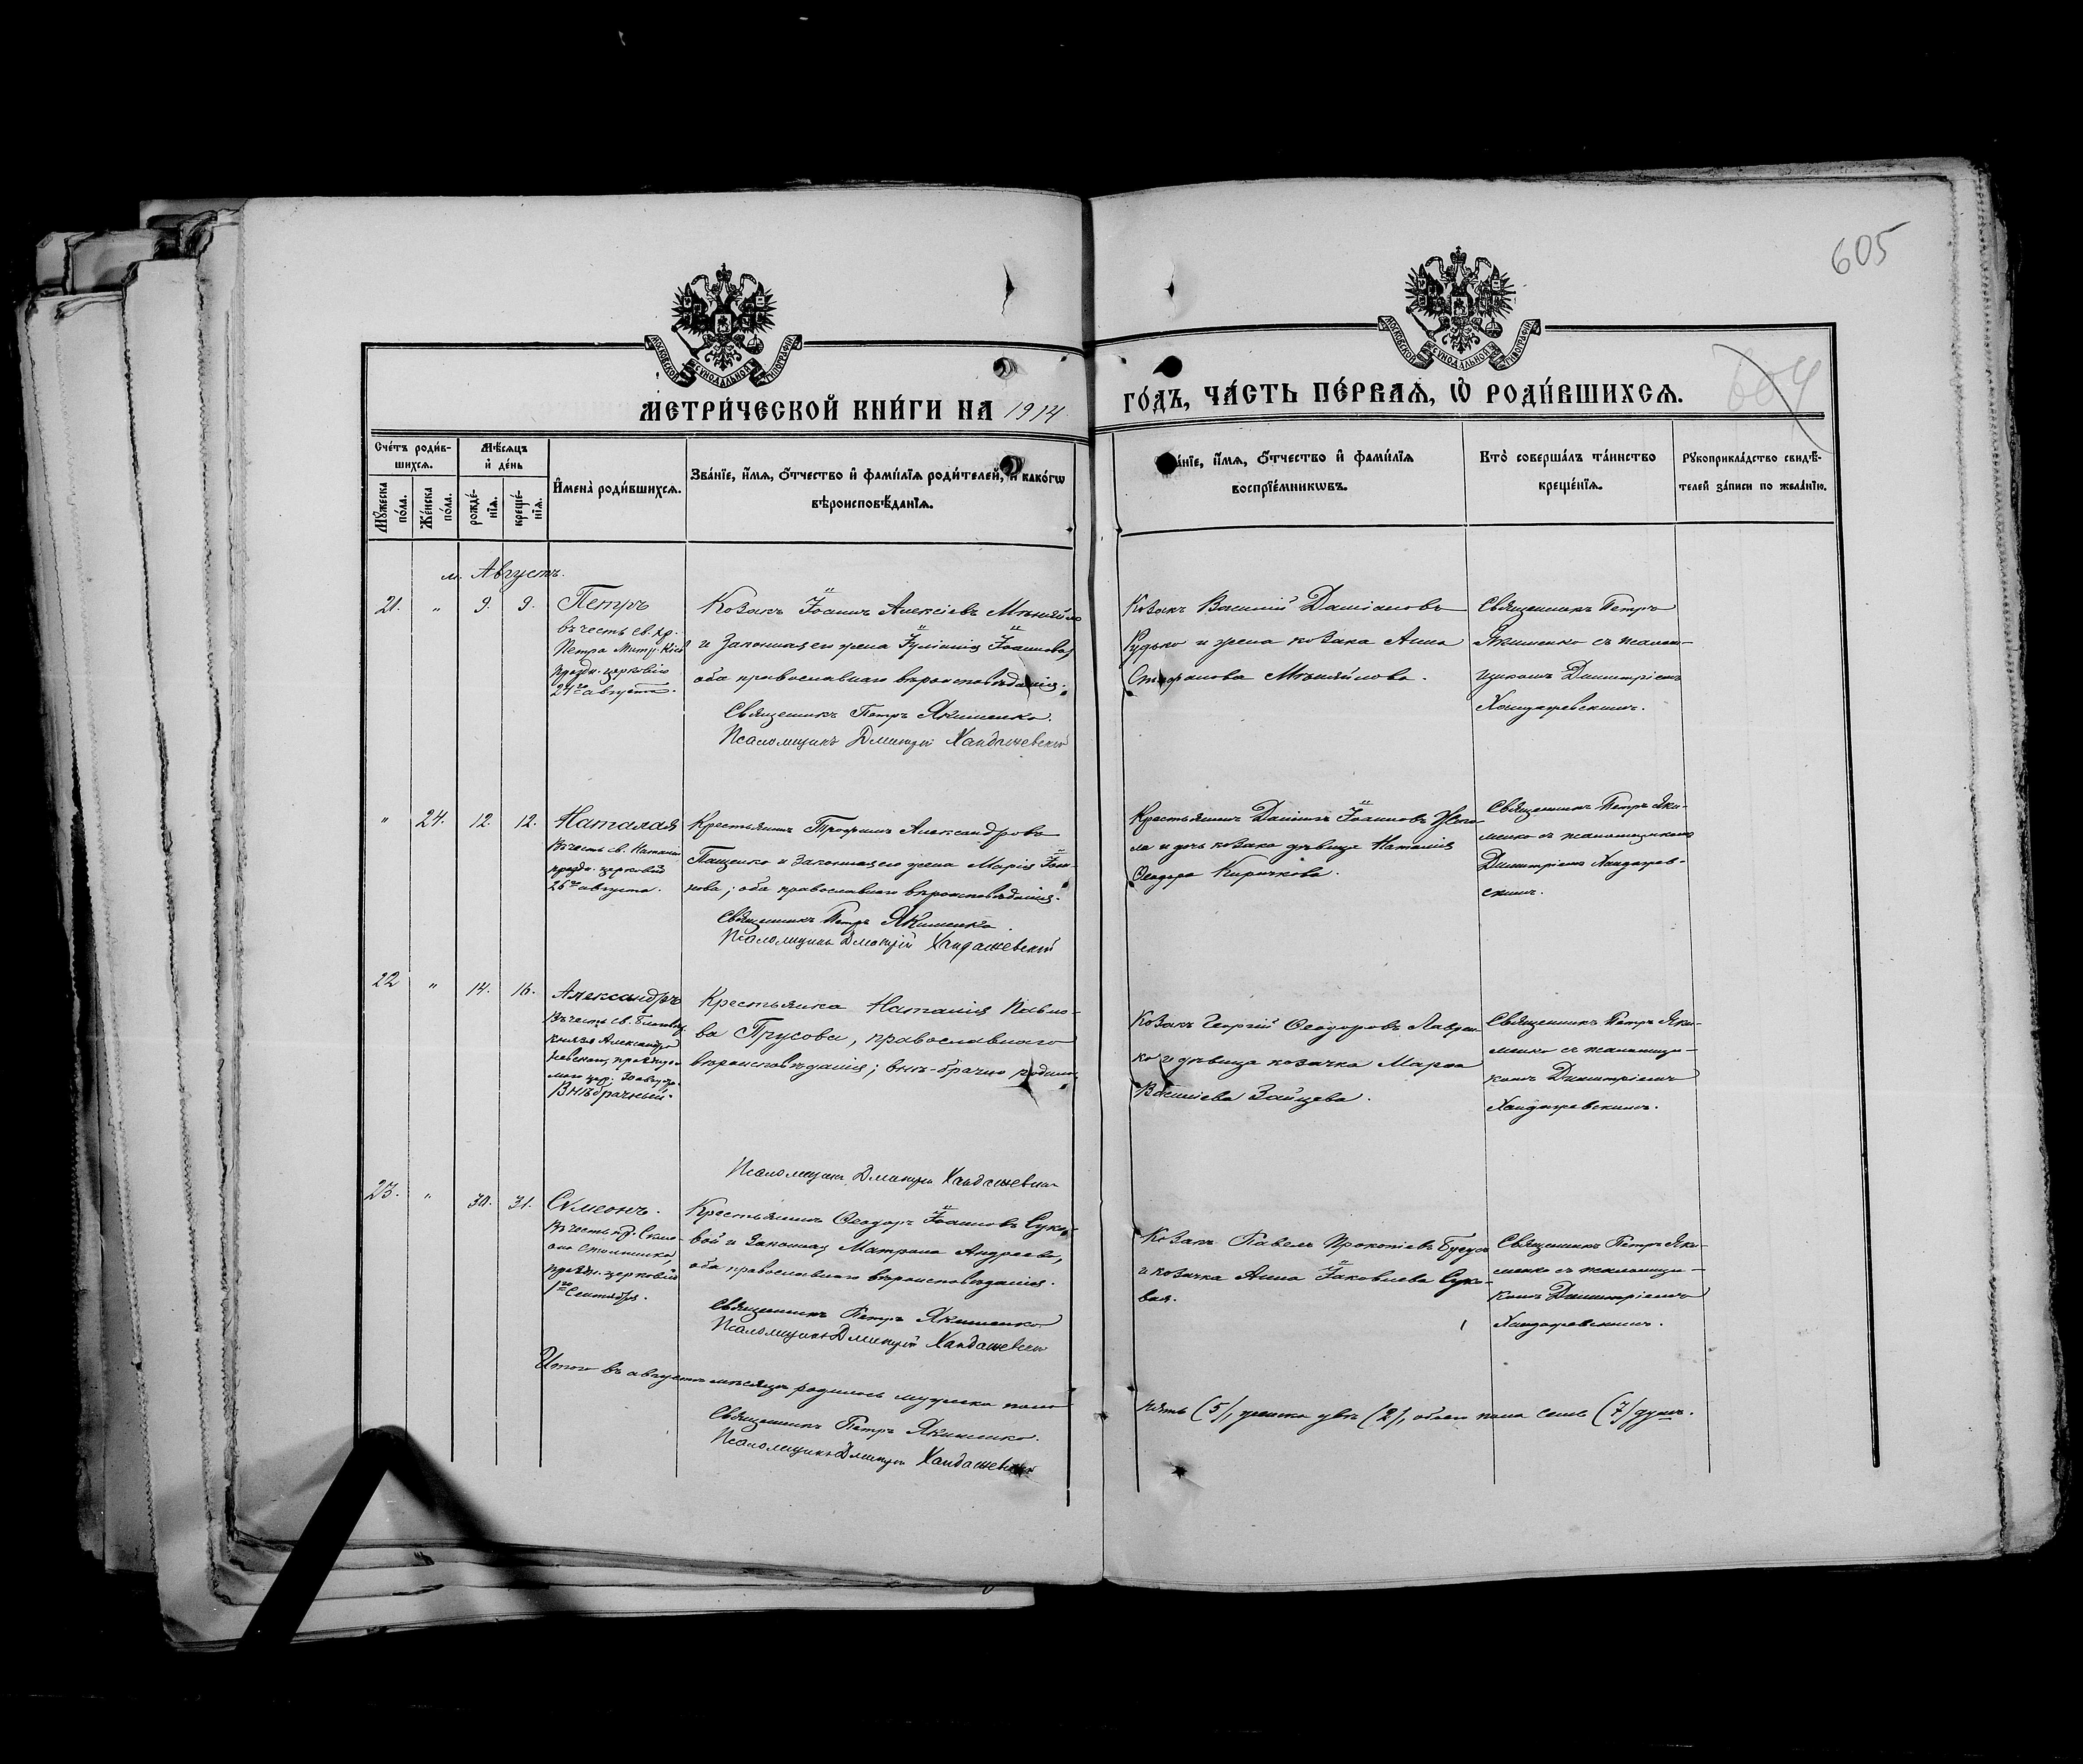 605
604
МОСКОВСКОЙ СѴНОДАЛЬНОЙ ТИПОГРАФІИ
МОСКОВСКОЙ СѴНОДАЛЬНОЙ ТИПОГРАФІИ
МЕТРИ́ЧЕСКОЙ КНИ́ГИ НА 1914
ГО́ДЪ, ЧА́СТЬ ПЕ́РВАѦ, Ѡ РОДИ́ВШИХСѦ.
Сче́тъ роди́в-
шихсѧ.
Мѣ́сѧцъ
и де́нь
Мꙋ́жеска
по́ла.
Же́нска
по́ла.
рожде́-
нїѧ.
креще́-
нїѧ.
Имена̀ роди́вшихсѧ.
Зва́нїе, и́мѧ, о́тчество и фами́лїѧ роди́телей, и како́гѡ
вѣроисповѣ́данїѧ.
а́нїе, и́мѧ, о́тчество и фами́лїѧ
воспрїе́мникѡвъ.
Кто̀ соверша́лъ та́инство
креще́нїѧ.
Рꙋкоприкла́дство свидѣ́-
телей за́писи по жела́нїю.
м. Августъ.
21. " 9. 9. Петръ
въ честь св.
Петра Митр. Кіев
праздн. церковію
24го августа.
Козакъ Іоаннъ Алексіевъ Мѣняйло
и законная его жена Іуліанія Іоаннова,
оба православнаго вѣроисповѣданія.
Священникъ Петръ Якименко.
Псаломщикъ Дмитрій Хандажевскій
Козакъ Василій Даміановъ
Рудько и жена козака Анна
Стефанова Мѣняйлова.
Священникъ Петръ
Якименко съ псалом-
щикомъ Димитріемъ
Хандажевскимъ.
" 24. 12. 12. Наталія
въ честь св. Наталіи
праздн. церковію
26го августа.
Крестьянинъ Трофимъ Александровъ
Пащенко и законная его жена Марія Іоан-
нова; оба православнаго вѣроисповѣданія.
Священникъ Петръ Якименко.
Псаломщикъ Дмитрій Хандажевскій
Крестьянинъ Даніилъ Іоанновъ
ла и дочь козака дѣвица Наталія
Ѳеодора Киричкова.
Священникъ Петръ Яки-
менко съ псаломщикомъ
Димитріемъ Хандажев-
скимъ.
22 " 14. 16. Александръ
въ честь св. Благовѣр.
князя Александра
Невскаго, празднуе-
маго цер. 30 августа.
Внѣбрачный.
Крестьянка Наталія Павло-
ва Трусова, православнаго
вѣроисповѣданія; внѣ-брачно родила
Псаломщикъ Дмитрій Хандажевскій
Козакъ Георгій Ѳеодоровъ Лаврен-
ко и дѣвица козачка Марѳа
Василіева Зайцева.
Священникъ Петръ Яки-
менко съ псаломщи-
комъ Димитріемъ
Хандажевскимъ.
23. " 30. 31. Сѵмеонъ.
въ честь пр. Симе-
она столпника,
праздн. церковію
1го Сентября.
Крестьянинъ Ѳеодоръ Іоанновъ Суко-
вой и законная Матрона Андреева,
оба православнаго вѣроисповѣданія.
Священникъ Петръ Якименко
Псаломщикъ Дмитрій Хандажевскій
Козакъ Павелъ Прокопіевъ
и козачка Анна Іаковлева Суко-
вая.
Священникъ Петръ Яки-
менко съ псаломщи-
комъ Димитріемъ
Хандажевскимъ.
Итого въ августѣ мѣсяцѣ родилось мужеска пола
пять (5), женска двѣ (2), обоего пола семь (7) душъ.
Священникъ Петръ Якименко.
Псаломщикъ Дмитрій Хандажевскій